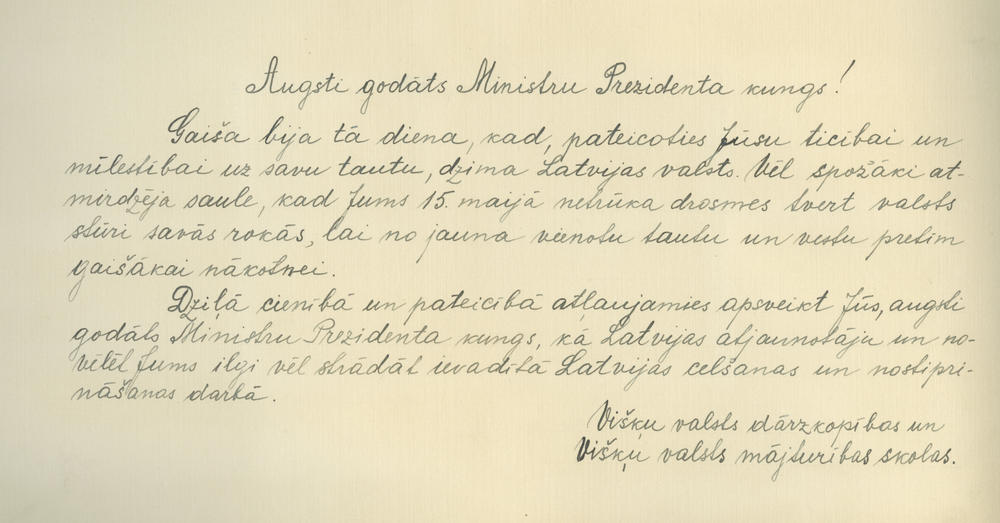 Augsti godāts Ministru Prezidenta kungs!
Gaiša bija tā diena, kad, pateicoties Jūsu ticībai un
mīlestībai uz savu tautu, dzima Latvijas valsts. Vēl spožāki at-
mirdzēja saule, kad Jums 15. maijā netrūka drosmes tvert valsts
stūri savās rokās, lai no jauna vienotu tautu un vestu pretim
gaišākai nākotnei.
Dziļā cienībā un pateicībā atļaujamies apsveikt Jūs, augsti
godāts Ministru Prezidenta kungs, kā Latvijas atjaunotāju un no-
vēlēt Jums ilgi vēl strādāt ievadītā Latvijas celšanas un nostipri-
nāšanas darbā.
Višķu valsts dārzkopības un
Višķu valsts mājturības skolas.